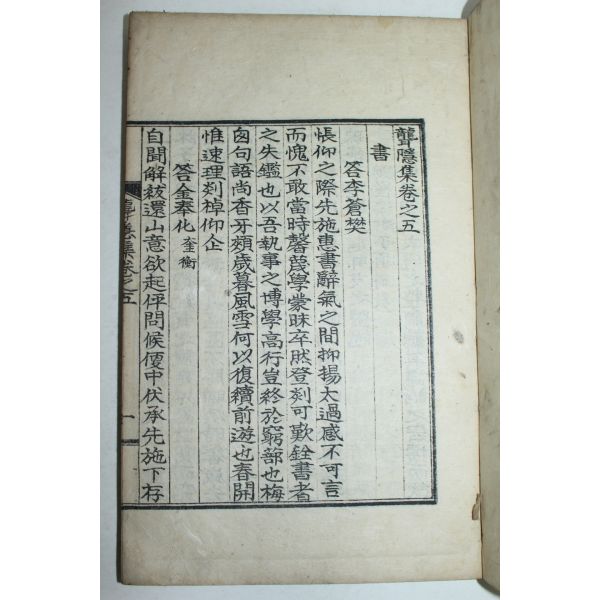 聾隱集卷之五
書
答李蒼樊
悵仰之際先施惠書辭氣之間抑揚太過感不可言
而愧不敢當時馨蔑學蒙昧卒然登剡可歎銓書者
之失鑑也以吾執事之博學高行豈終於窮蔀也梅
囪句語尚香牙頰歲暮風雪何以復續前遊也春開
惟速理剡棹仰企
答金奉化 奎衡
自聞解紱還山意欲起伻問候便中伏承先施下存
聾隱集卷之五
一